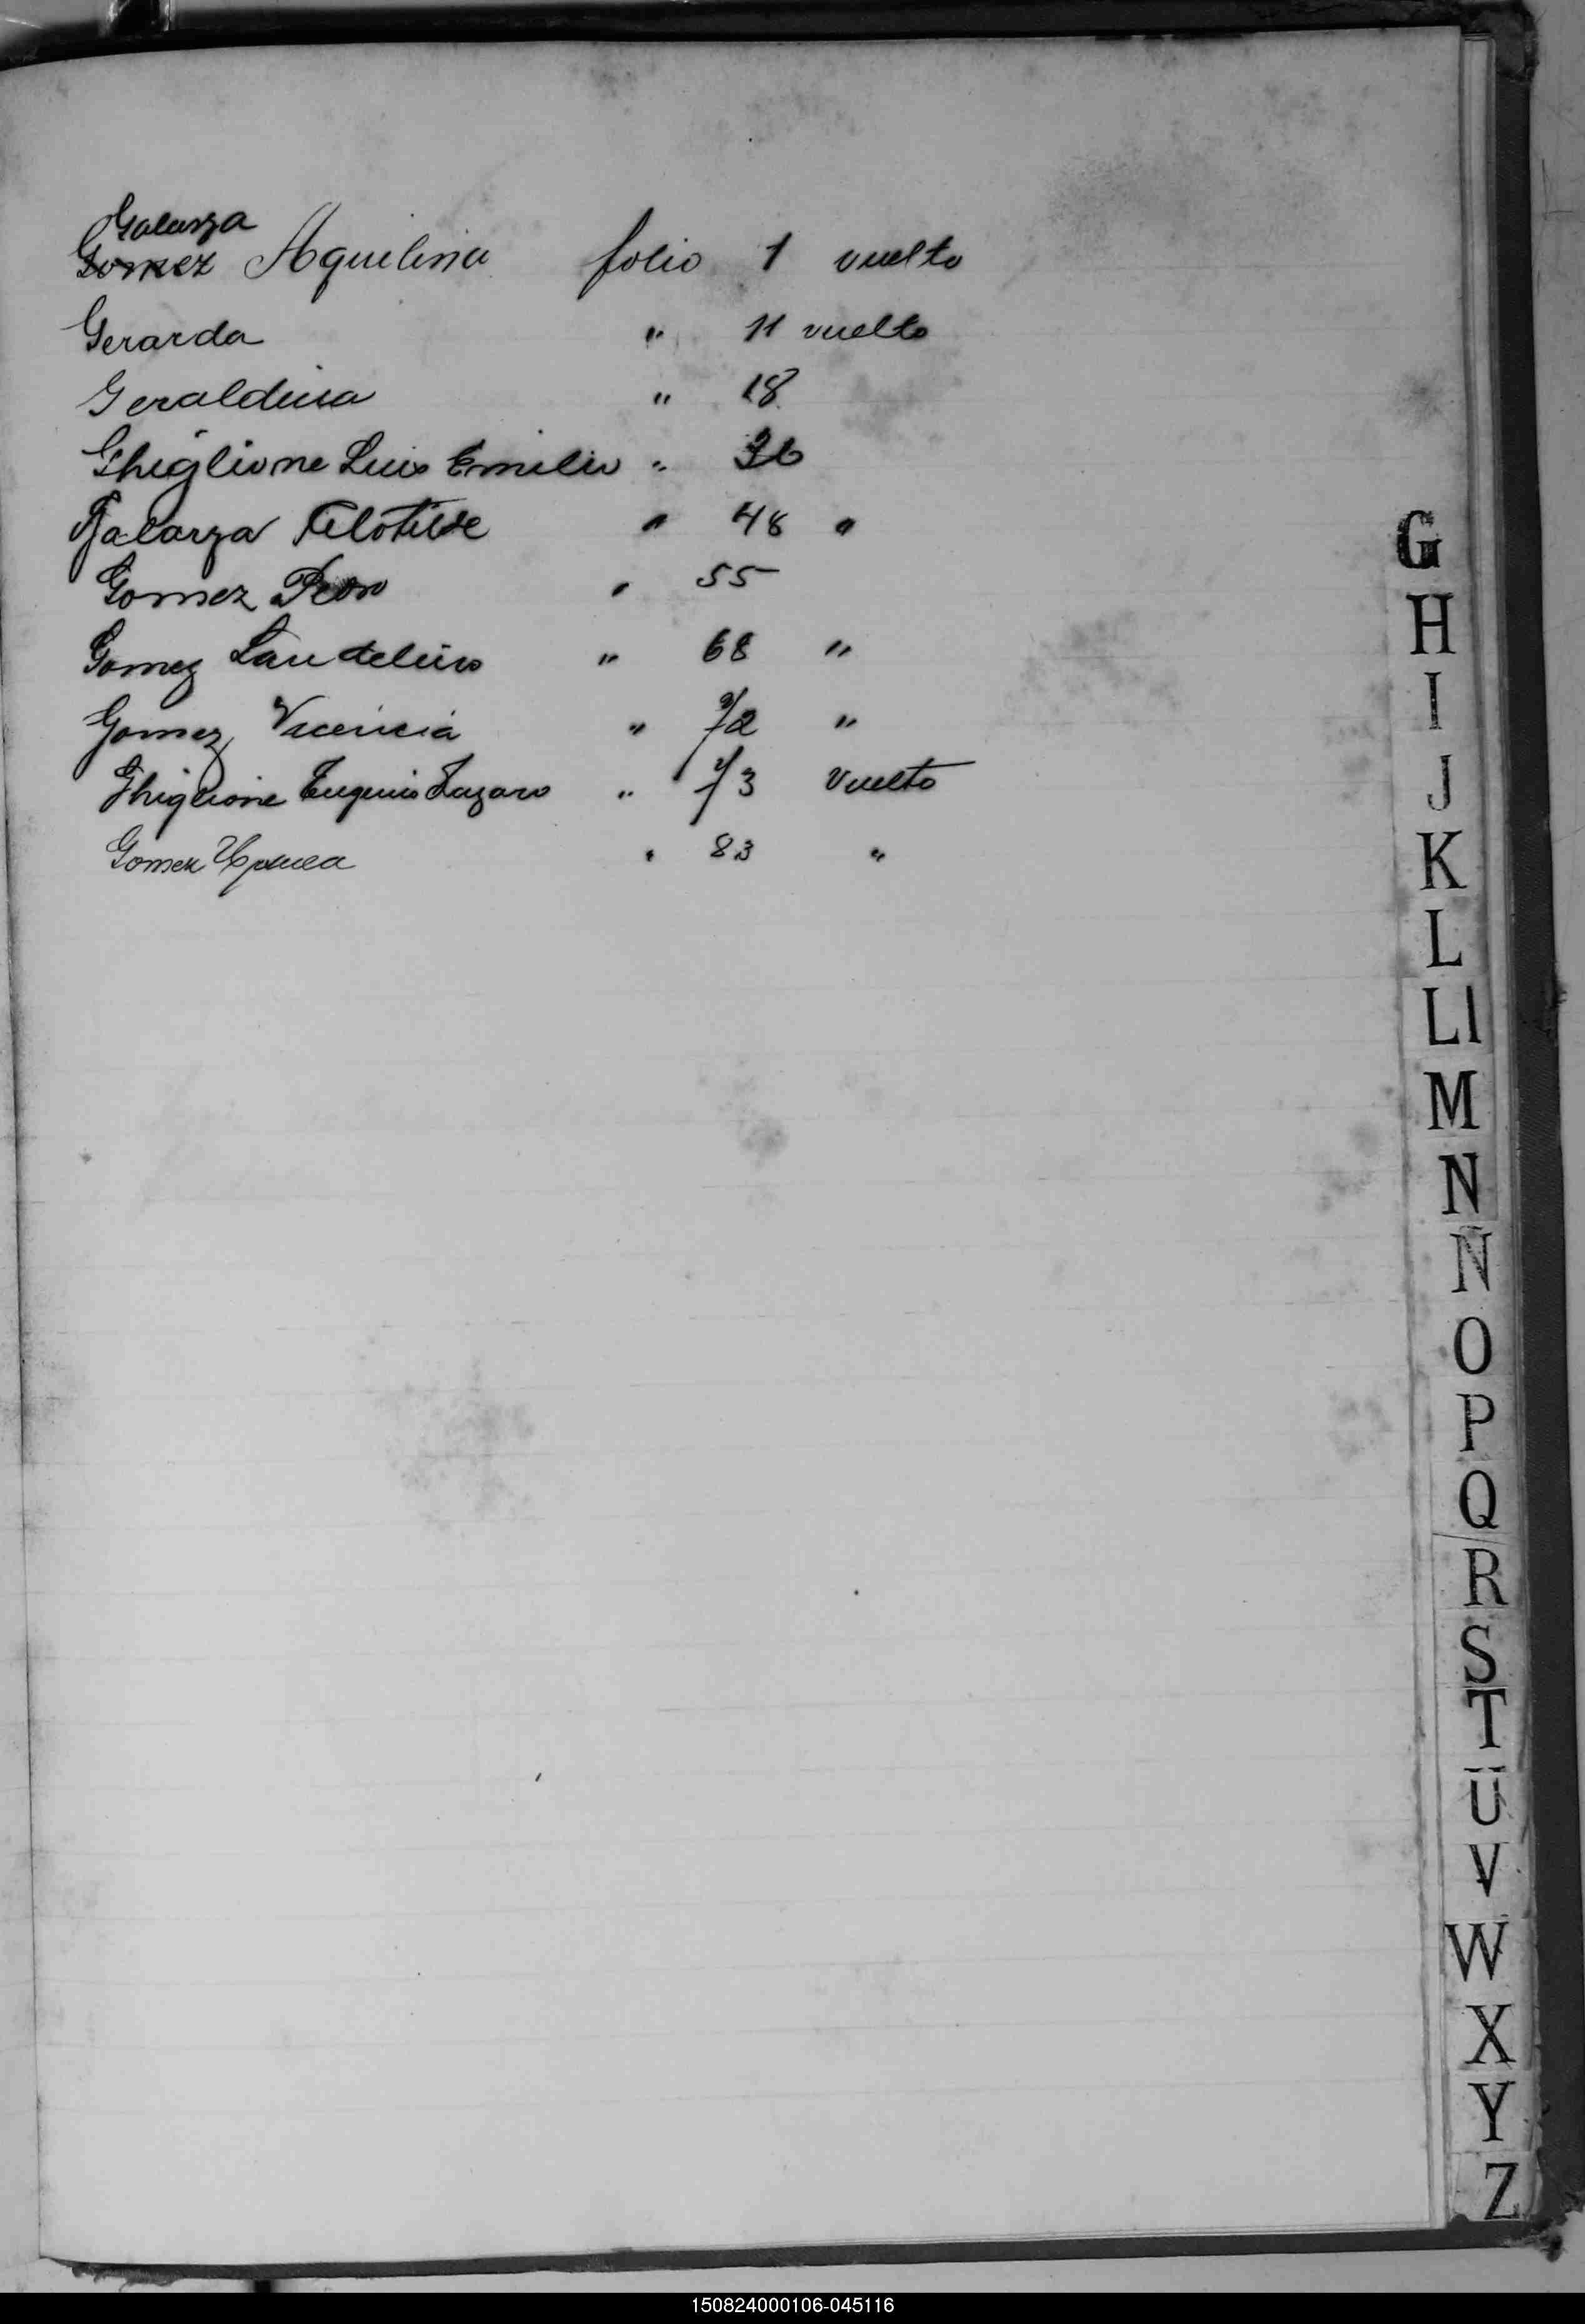 Galarza
Gomez Aquilina folio 1 vuelto
Gerarda " 11 vuelto
Geraldina " 18
Ghiglione Luis Emilio " 36
Galarza Clotilde " 48 "
Gomez Pedro " 55
Gomez Laudelino " 68 "
Gomez Vicencia " 72 "
Ghiglione Eugenio Lazaro " 73 Vuelto
Gomez " 83 "
G
H
I
J
K
L
Ll
M
N
Ñ
O
P
Q
R
S
T
U
V
W
X
Y
Z
150824000106-045116